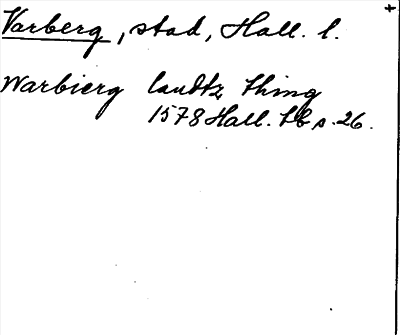 Varberg, stad, Hall. l.
Warbierg landtz thing
1578 Hall. LB s. 26.